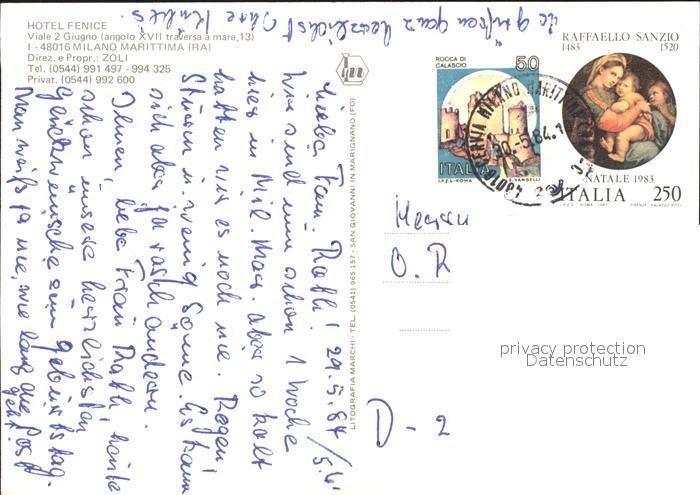 HOTEL FENICE
Viale 2 Giugno (angolo XVII traversa a mare,13)
I - 48016 MILANO MARITTIMA (RA)
Direz. e Propr.: ZOLI
Tel. (0544) 991 497 - 994 325
Privat. (0544) 992 600
Liebe Fam. Rath! 29.5.84
Wir sind nun schon 1 Woche
hier in Mil. Mar. aber so kalt
hatten wir es noch nie. Regen,
Sturm u. wenig Sonne. Es kann
sich aber ja rasch ändern.
Ihnen, liebe Frau Rath, heute
schon unsere herzlichsten
Glückwünsche zum Geburtstag.
Man weiß ja nie, wie lang die Post
geht.
Sie grüßen ganz herzlichst Ihre
LITOGRAFIA MARCHI - TEL. (0541) 965 157 - SAN GIOVANNI IN MARIGNANO (FO)
ROCCA DI
CALASCIO
50
ITALIA
I.P.Z.S.-ROMA E. VANGELLI
RAFFAELLO SANZIO
1483 1520
NATALE 1983
ITALIA 250
Herrn
O. R
D - 2
privacy protection
Datenschutz